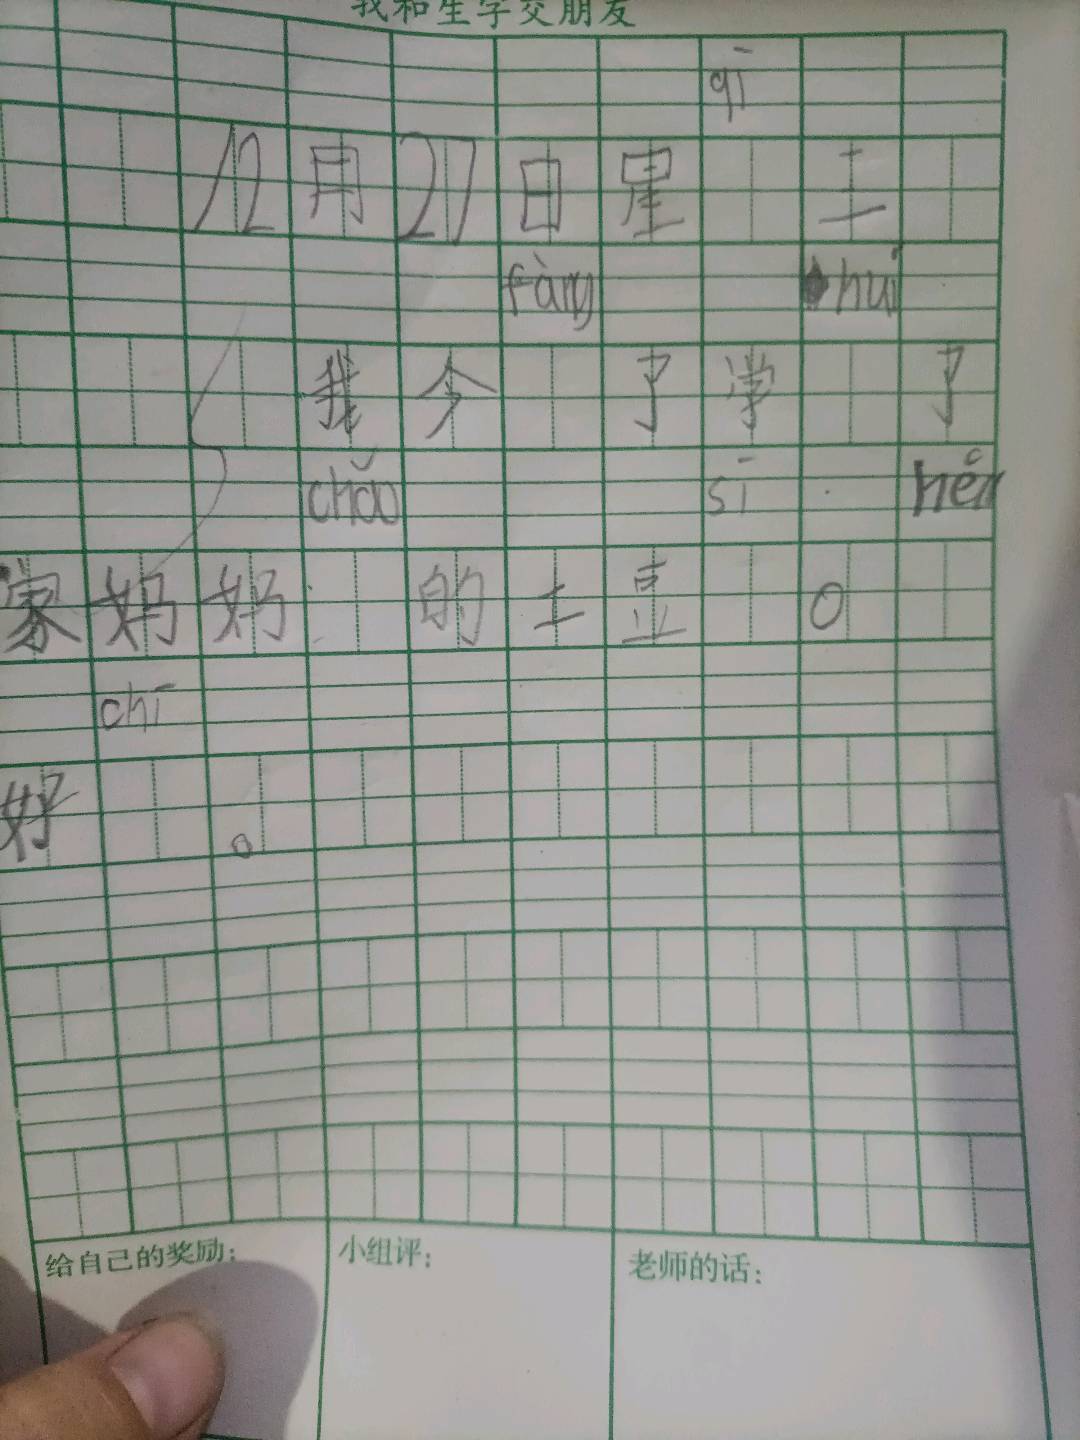 我和生字交朋友
qī
12月27日星 二
fàng huí
我今 了学 了
chǎo sī hěn
家妈妈 的土豆 。
chī
好 。
给自己的奖励： 小组评： 老师的话：